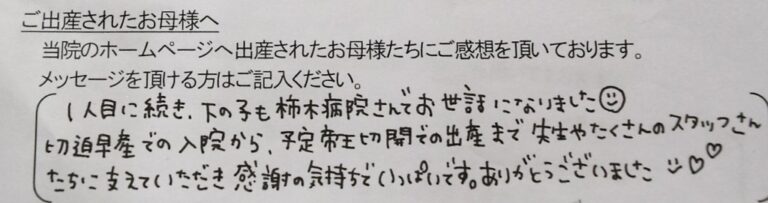 ご出産されたお母様へ
当院のホームページへ出産されたお母様たちにご感想を頂いております。
メッセージを頂ける方はご記入ください。
1人目に続き、下の子も柿木病院さんでお世話になりました☺
切迫早産での入院から、予定帝王切開での出産まで先生やたくさんのスタッフさん
たちに支えていただき感謝の気持ちでいっぱいです。ありがとうございました ♡♡